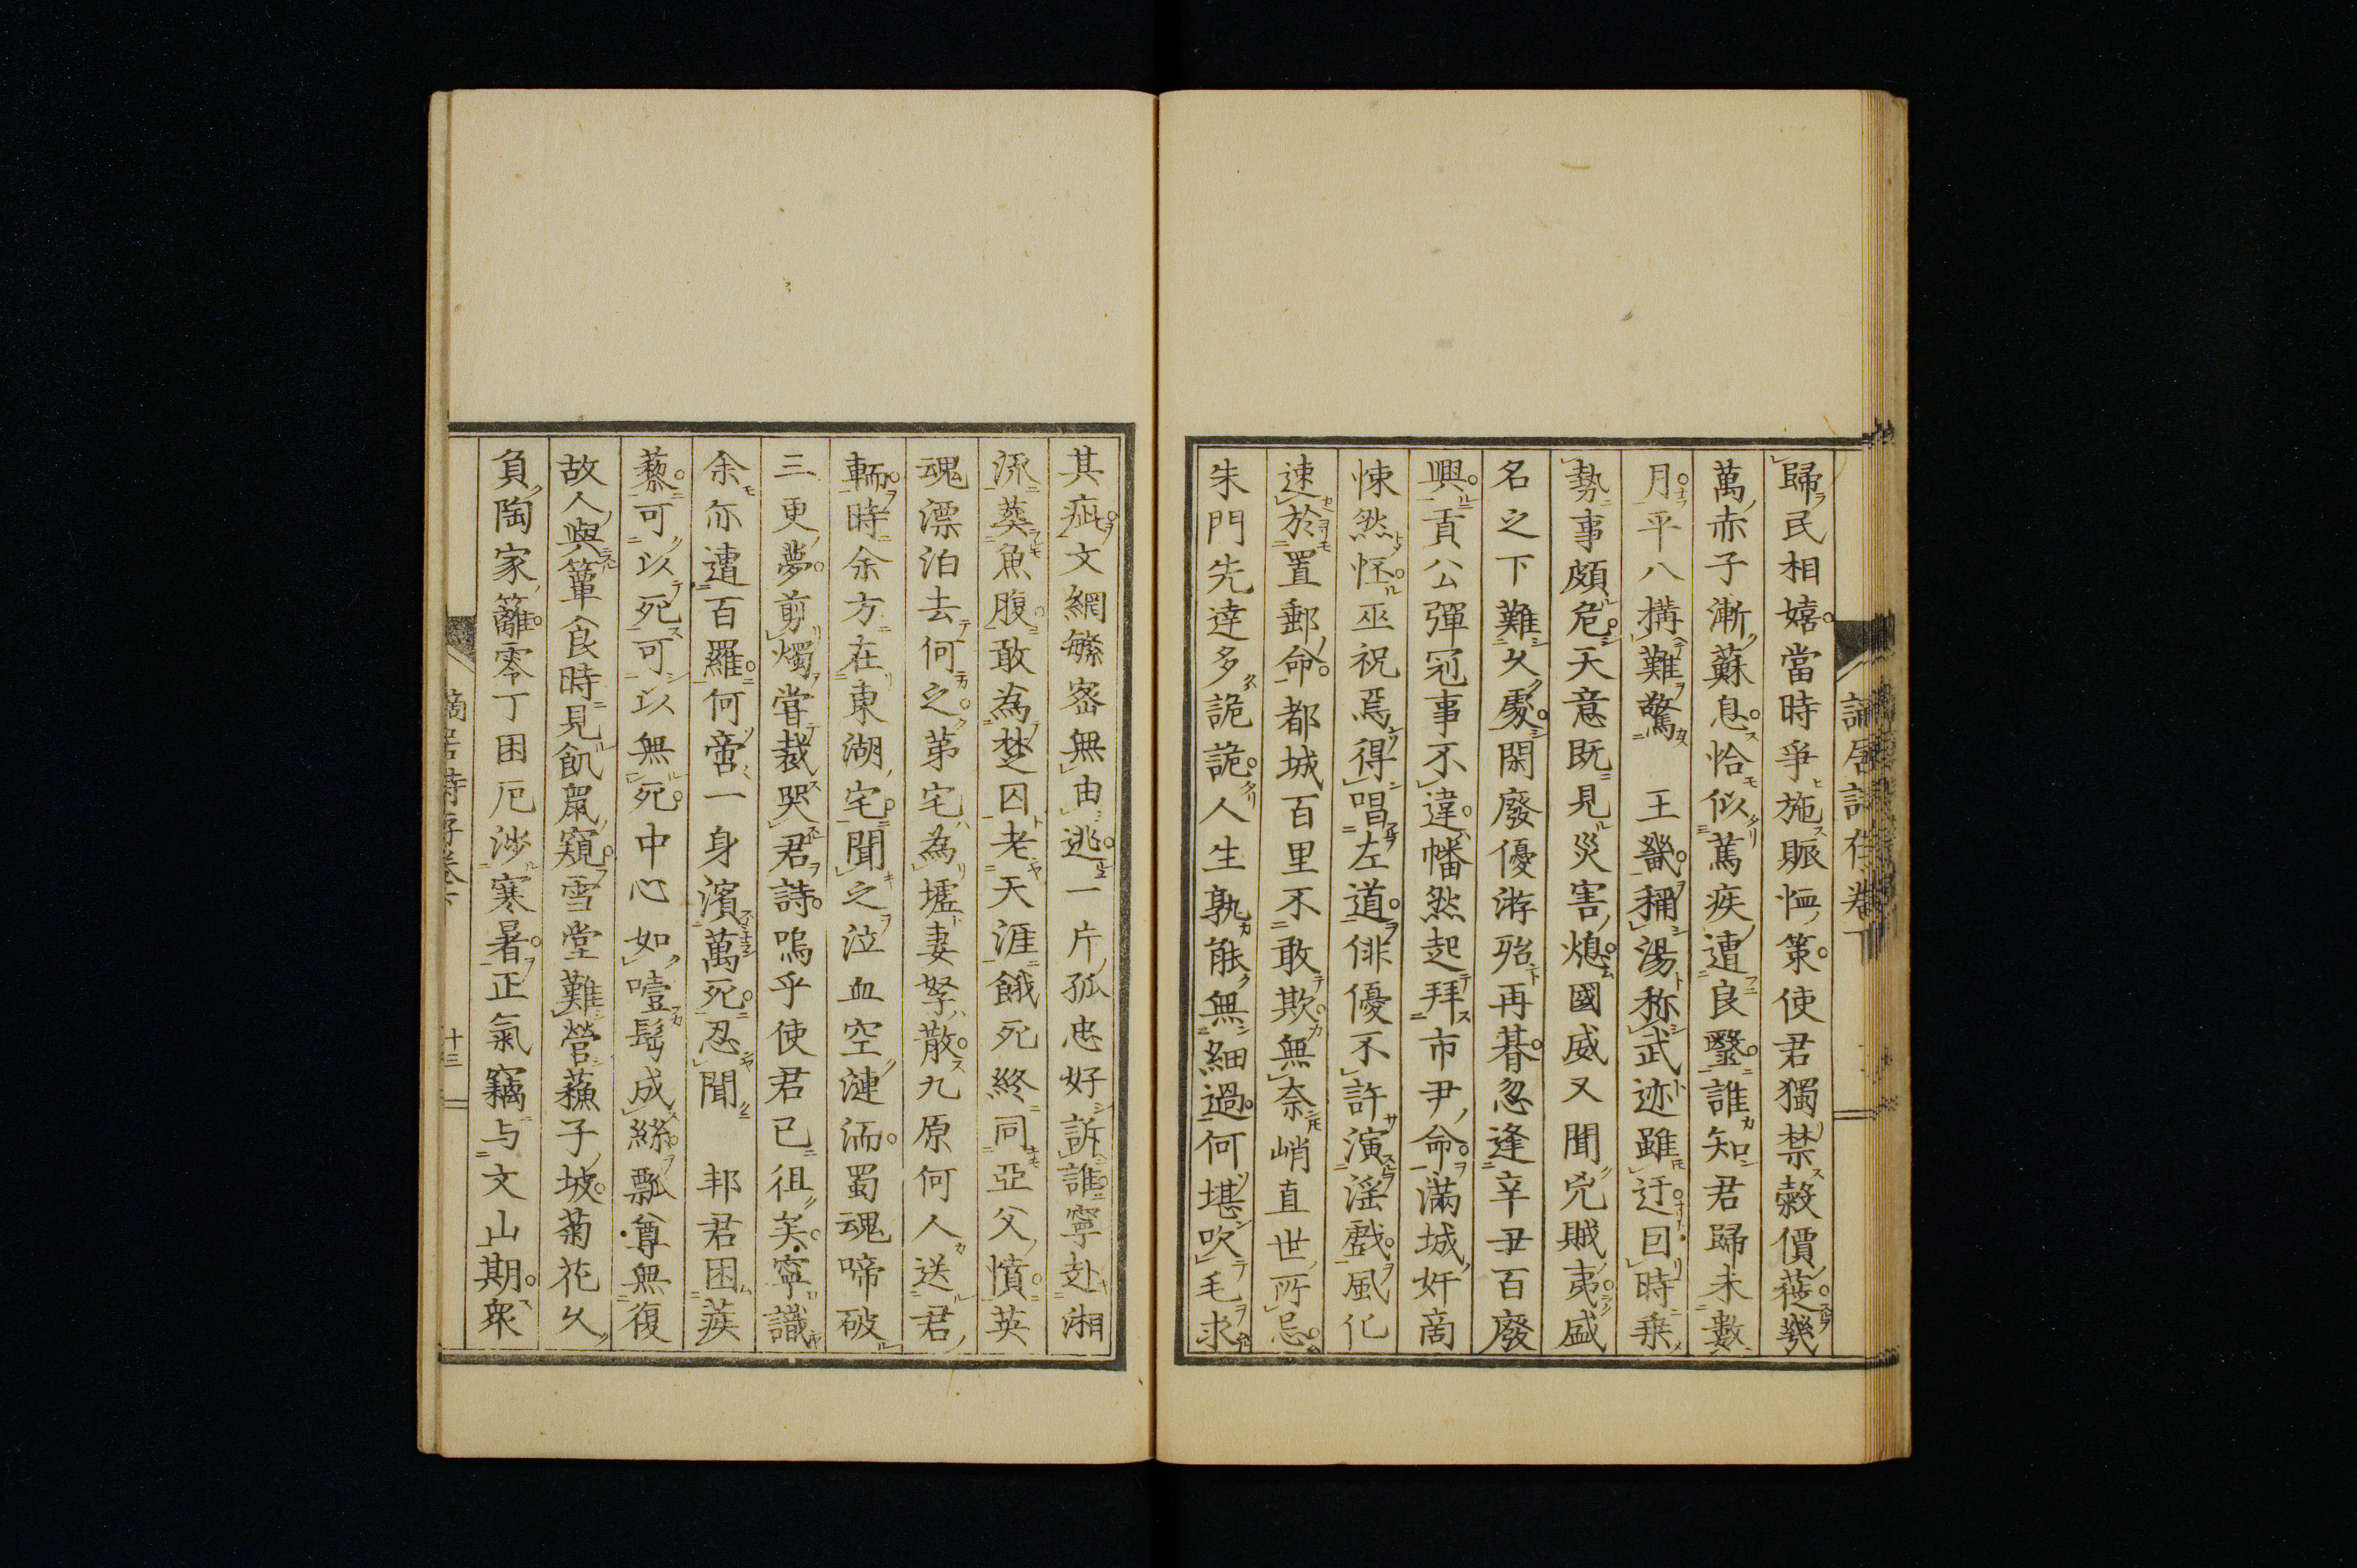 歸民相嬉當時爭施賑恤策使君獨禁糓價蓰幾
萬赤子漸蘇息恰似篤疾遭良毉誰知君歸未數
月平八搆難驚 王畿稱湯称武迹雖迂回時乗
勢事頗危天意既見災害熄國威又聞兇賊夷盛
名之下難久處閑廢優游殆再朞忽逢辛丑百廢
興貢公彈冠事不違幡然起拜市尹命滿城奸商
悚然怪巫祝焉得唱左道俳優不許演滛戲風化
速於置郵命都城百里不敢欺無奈峭直世所忌
朱門先達多詭詭人生孰能無細過何堪吹毛求
其疵文網繁密無由逃一片孤忠好訴誰寧赴湘
流葬魚腹敢為楚囚老天涯餓死終同亞父憤英
魂漂泊去何之第宅為墟妻孥散九原何人送君
輀時余方在東湖宅聞之泣血空漣洏蜀魂啼破
三更夢剪燭嘗裁哭君詩嗚乎使君已徂矣寧識
余亦遭百羅何啻一身濱萬死忍聞 邦君困蒺
藜可以死可以無死中心如噎髩成絲瓢尊無復
故人與簞食時見飢鼠窺雪堂難營蘓子坡菊花久
負陶家籬零丁困厄渉寒暑正氣竊与文山期衆